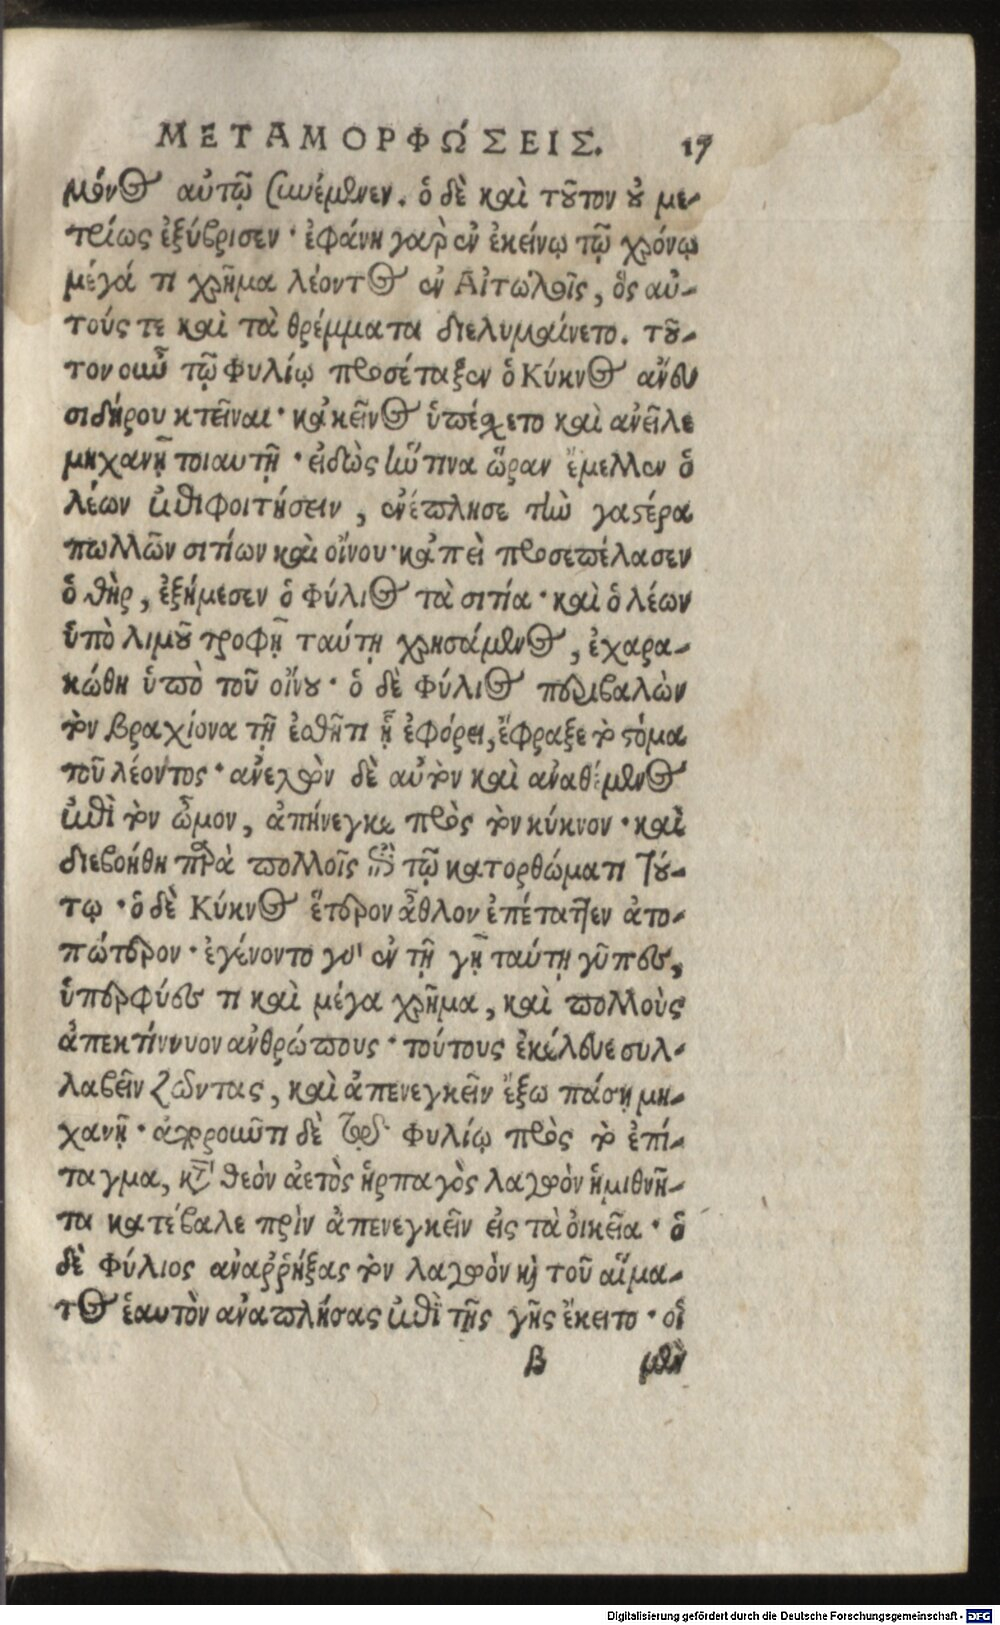 ΜΕΤΑΜΟΡΦΏΣΕΙΣ. 17
μόνος αὐτῷ συνέμεινεν. ὁ δὲ καὶ τοῦτον οὐ με-
τρίως ἐξύβρισεν· ἐφάνη γαρ ἐν ἐκείνῳ τῷ χρόνῳ
μέγά τι χρῆμα λέοντος ἐν Αἰτωλοῖς, ὃς αὐ-
τούς τε καὶ τὰ θρέμματα διελυμαίνετο. τοῦ-
τον οὖν τῷ Φυλίῳ προσέταξεν ὁ Κύκνος ἄνευ
σιδήρου κτεῖναι· κἀκεῖνος ὑπέσχετο καὶ ἀνεῖλε
μηχανῇ τοιαυτῇ· εἰδὼς ἥντινα ὥραν ἔμελλεν ὁ
λέων ἐπιφοιτήσειν, ἐνέπλησε τὴν γαστέρα
πολλῶν σιτίων καὶ οἴνου· κἀπεὶ προσεπέλασεν
ὁ θὴρ, ἐξήμεσεν ὁ Φύλιος τὰ σιτία· καὶ ὁ λέων
ὑπὸ λιμοῦ τροφῇ ταύτῃ χρησάμενος, ἐχαρα-
κώθη ὑπὸ τοῦ οἴνου· ὁ δὲ Φύλιος περιβαλὼν
τὸν βραχίονα τῇ ἐσθῆτι ᾗ ἐφόρει, ἔφραξε τὸ στόμα
τοῦ λέοντος· ἀνελὼν δὲ αὐτὸν καὶ ἀναθέμενος
ἐπὶ τὸν ὦμον, ἀπήνεγκε πρὸς τὸν κύκνον· καὶ
διεβοήθη παρὰ πολλοῖς ἐπὶ τῷ κατορθώματι τού-
τῳ· ὁ δὲ Κύκνος ἕτερον ἆθλον ἐπέταττεν ἀτο-
πώτερον· ἐγένοντο γὰρ ἐν τῇ γῇ ταύτῃ γῦπες,
ὑπερφύες τι καὶ μέγα χρῆμα, καὶ πολλοὺς
ἀπεκτίννυον ἀνθρώπους· τούτους ἐκέλευε συλ-
λαβεῖν ζῶντας, καὶ ἀπενεγκεῖν ἔξω πάσῃ μη-
χανῇ· ἀπροῦντι δὲ Φυλίῳ πρὸς τὸ ἐπί-
ταγμα, κατὰ θεὸν ἀετὸς ἡρπαγὸς λαγωὸν ἡμιθνῆ-
τα κατέβαλε πρὶν ἀπενεγκεῖν εἰς τὰ οἰκεῖα· ὁ
δὲ Φύλιος ἀναῤῥήξας τὸν λαγωὸν καὶ τοῦ αἵμα-
τος ἑαυτὸν ἀναπλήσας ἐπὶ τῆς γῆς ἔκειτο· οἱ
β μὲν
Digitalisierung gefördert durch die Deutsche Forschungsgemeinschaft - DFG